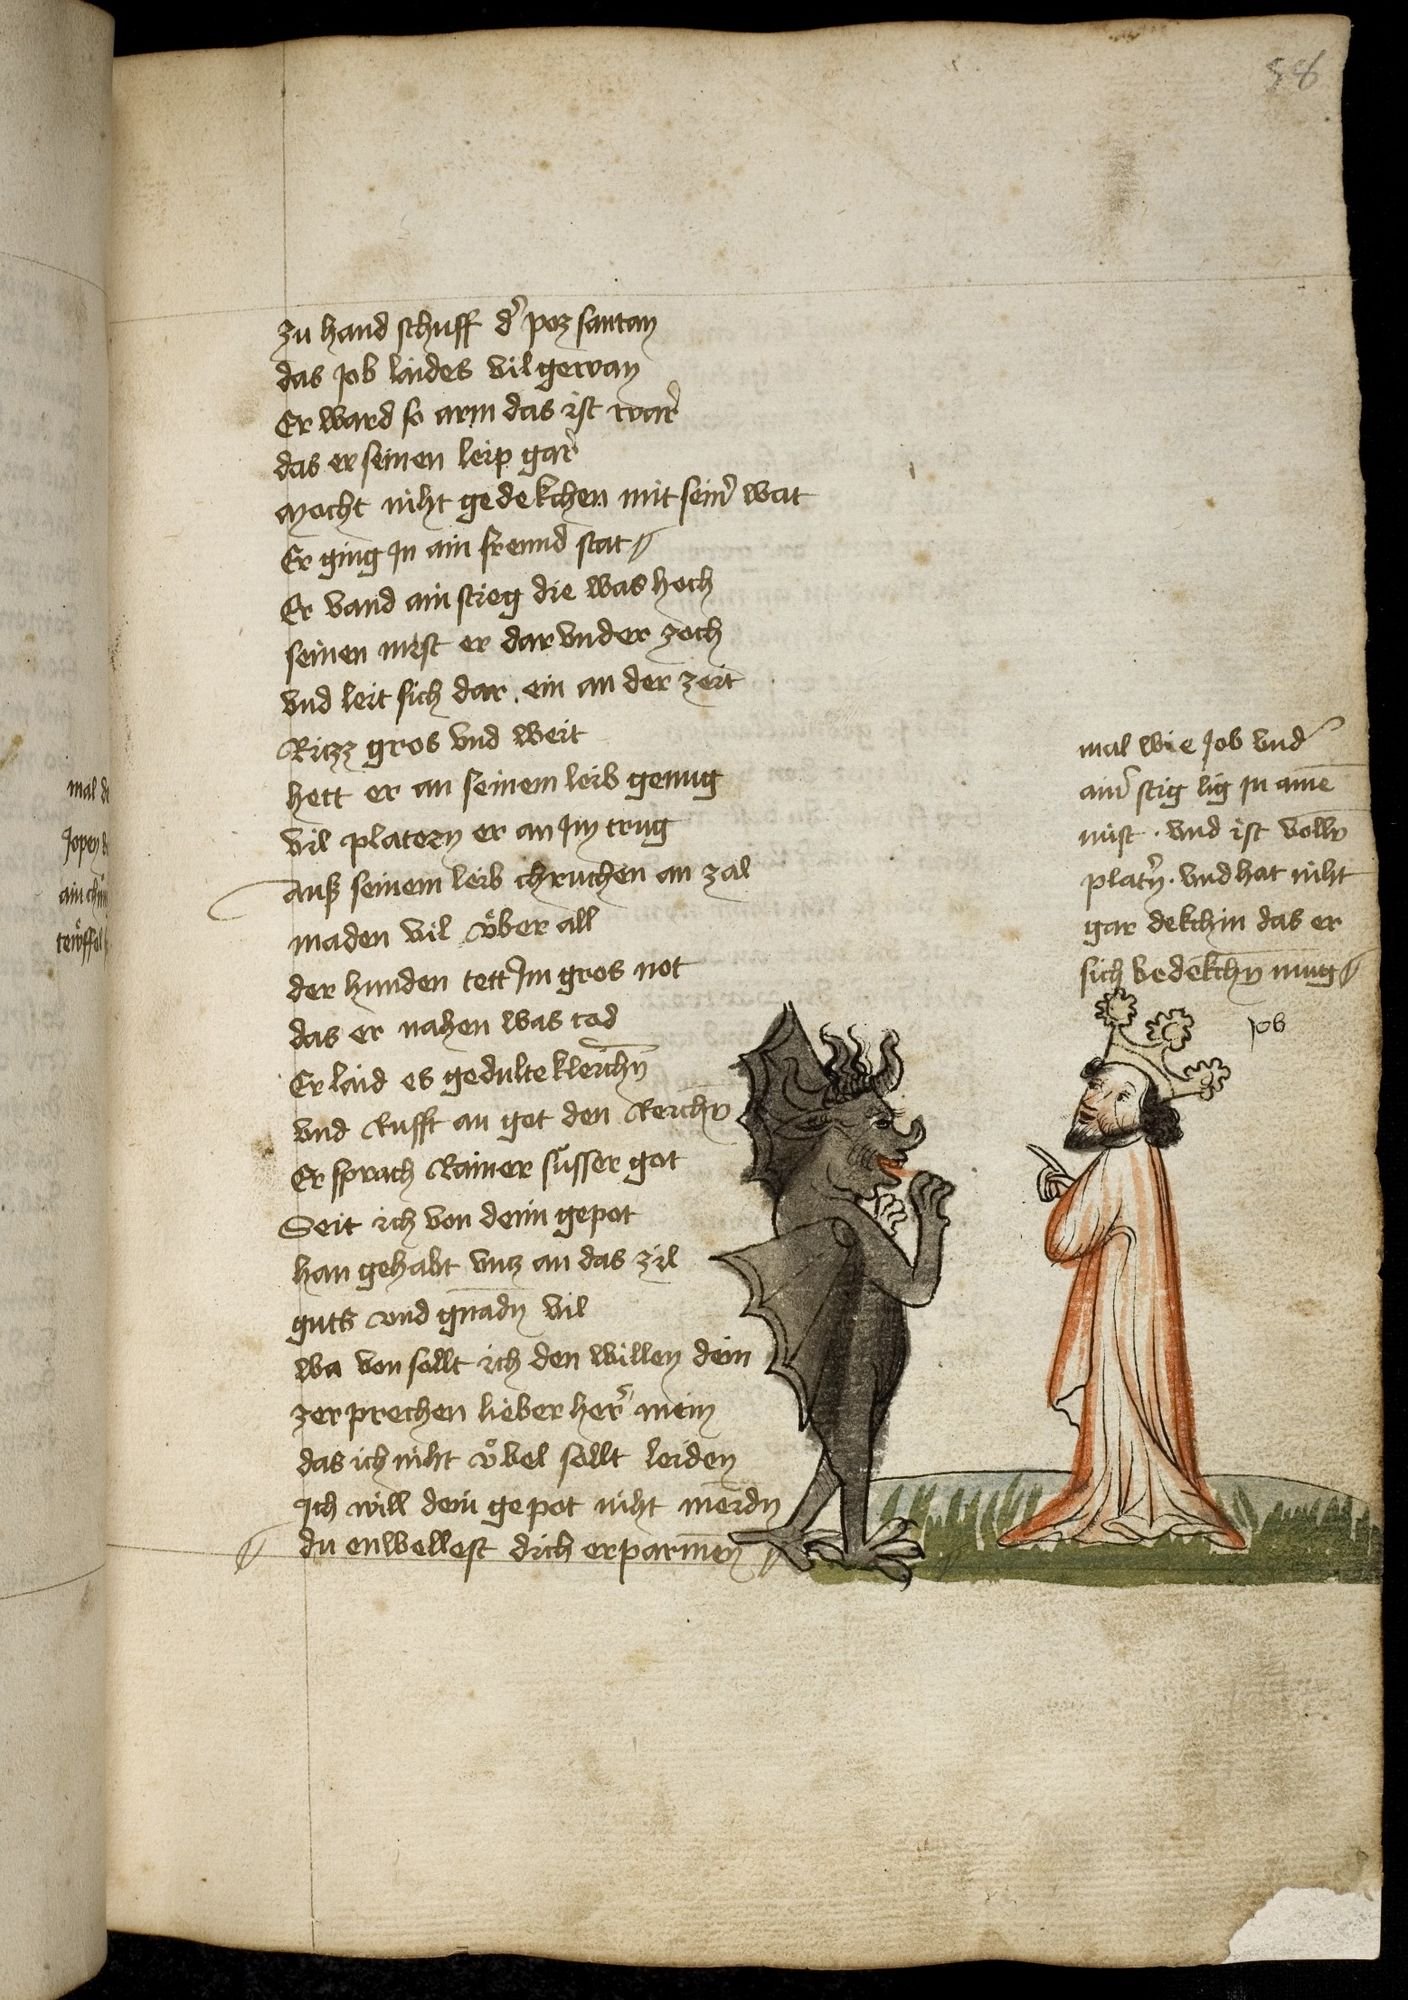 58
zu hand schuff d' poz santan
das Job laides vil gewan
Er ward so arm das ist war'
das er seinen leip gar'
Mocht niht gedekchen mit sein' wat
Er ging Jn ain fremd stat
Er vand ain stieg die was hoch
seinen mist er dar vnder zoch
vnd leit sich dar ein an der zeit
Ritzz gros vnd weit
hett er an seinem leib genug
vil platern er an Jm trug
Auß seinem leib chruchen an zal
maden vil vͤber all
der hunden tett Jm gros not
das er nahen was tod
Er laid es gedulteklichn̄
vnd Rufft an got den Reichn̄
Er sprach Rainer süsser got
Seit ich von deim gepot
han gehabt vntz an das zil
guts vnd gnadn̄ vil
wa von sollt ich den willen dein
zerprechen lieber her' mein
das ich niht vͤbel sollt leiden
Ich will dein gepot niht meidn
du enwellest dich erparmen̄
mal wie Job vnd'
ain' stig lig Jn aine̅
mist · vnd ist voller
plat'n · vnd hat niht
gar dekchin das er
sich bedekchn̄ mug
Job
mal
Jopen